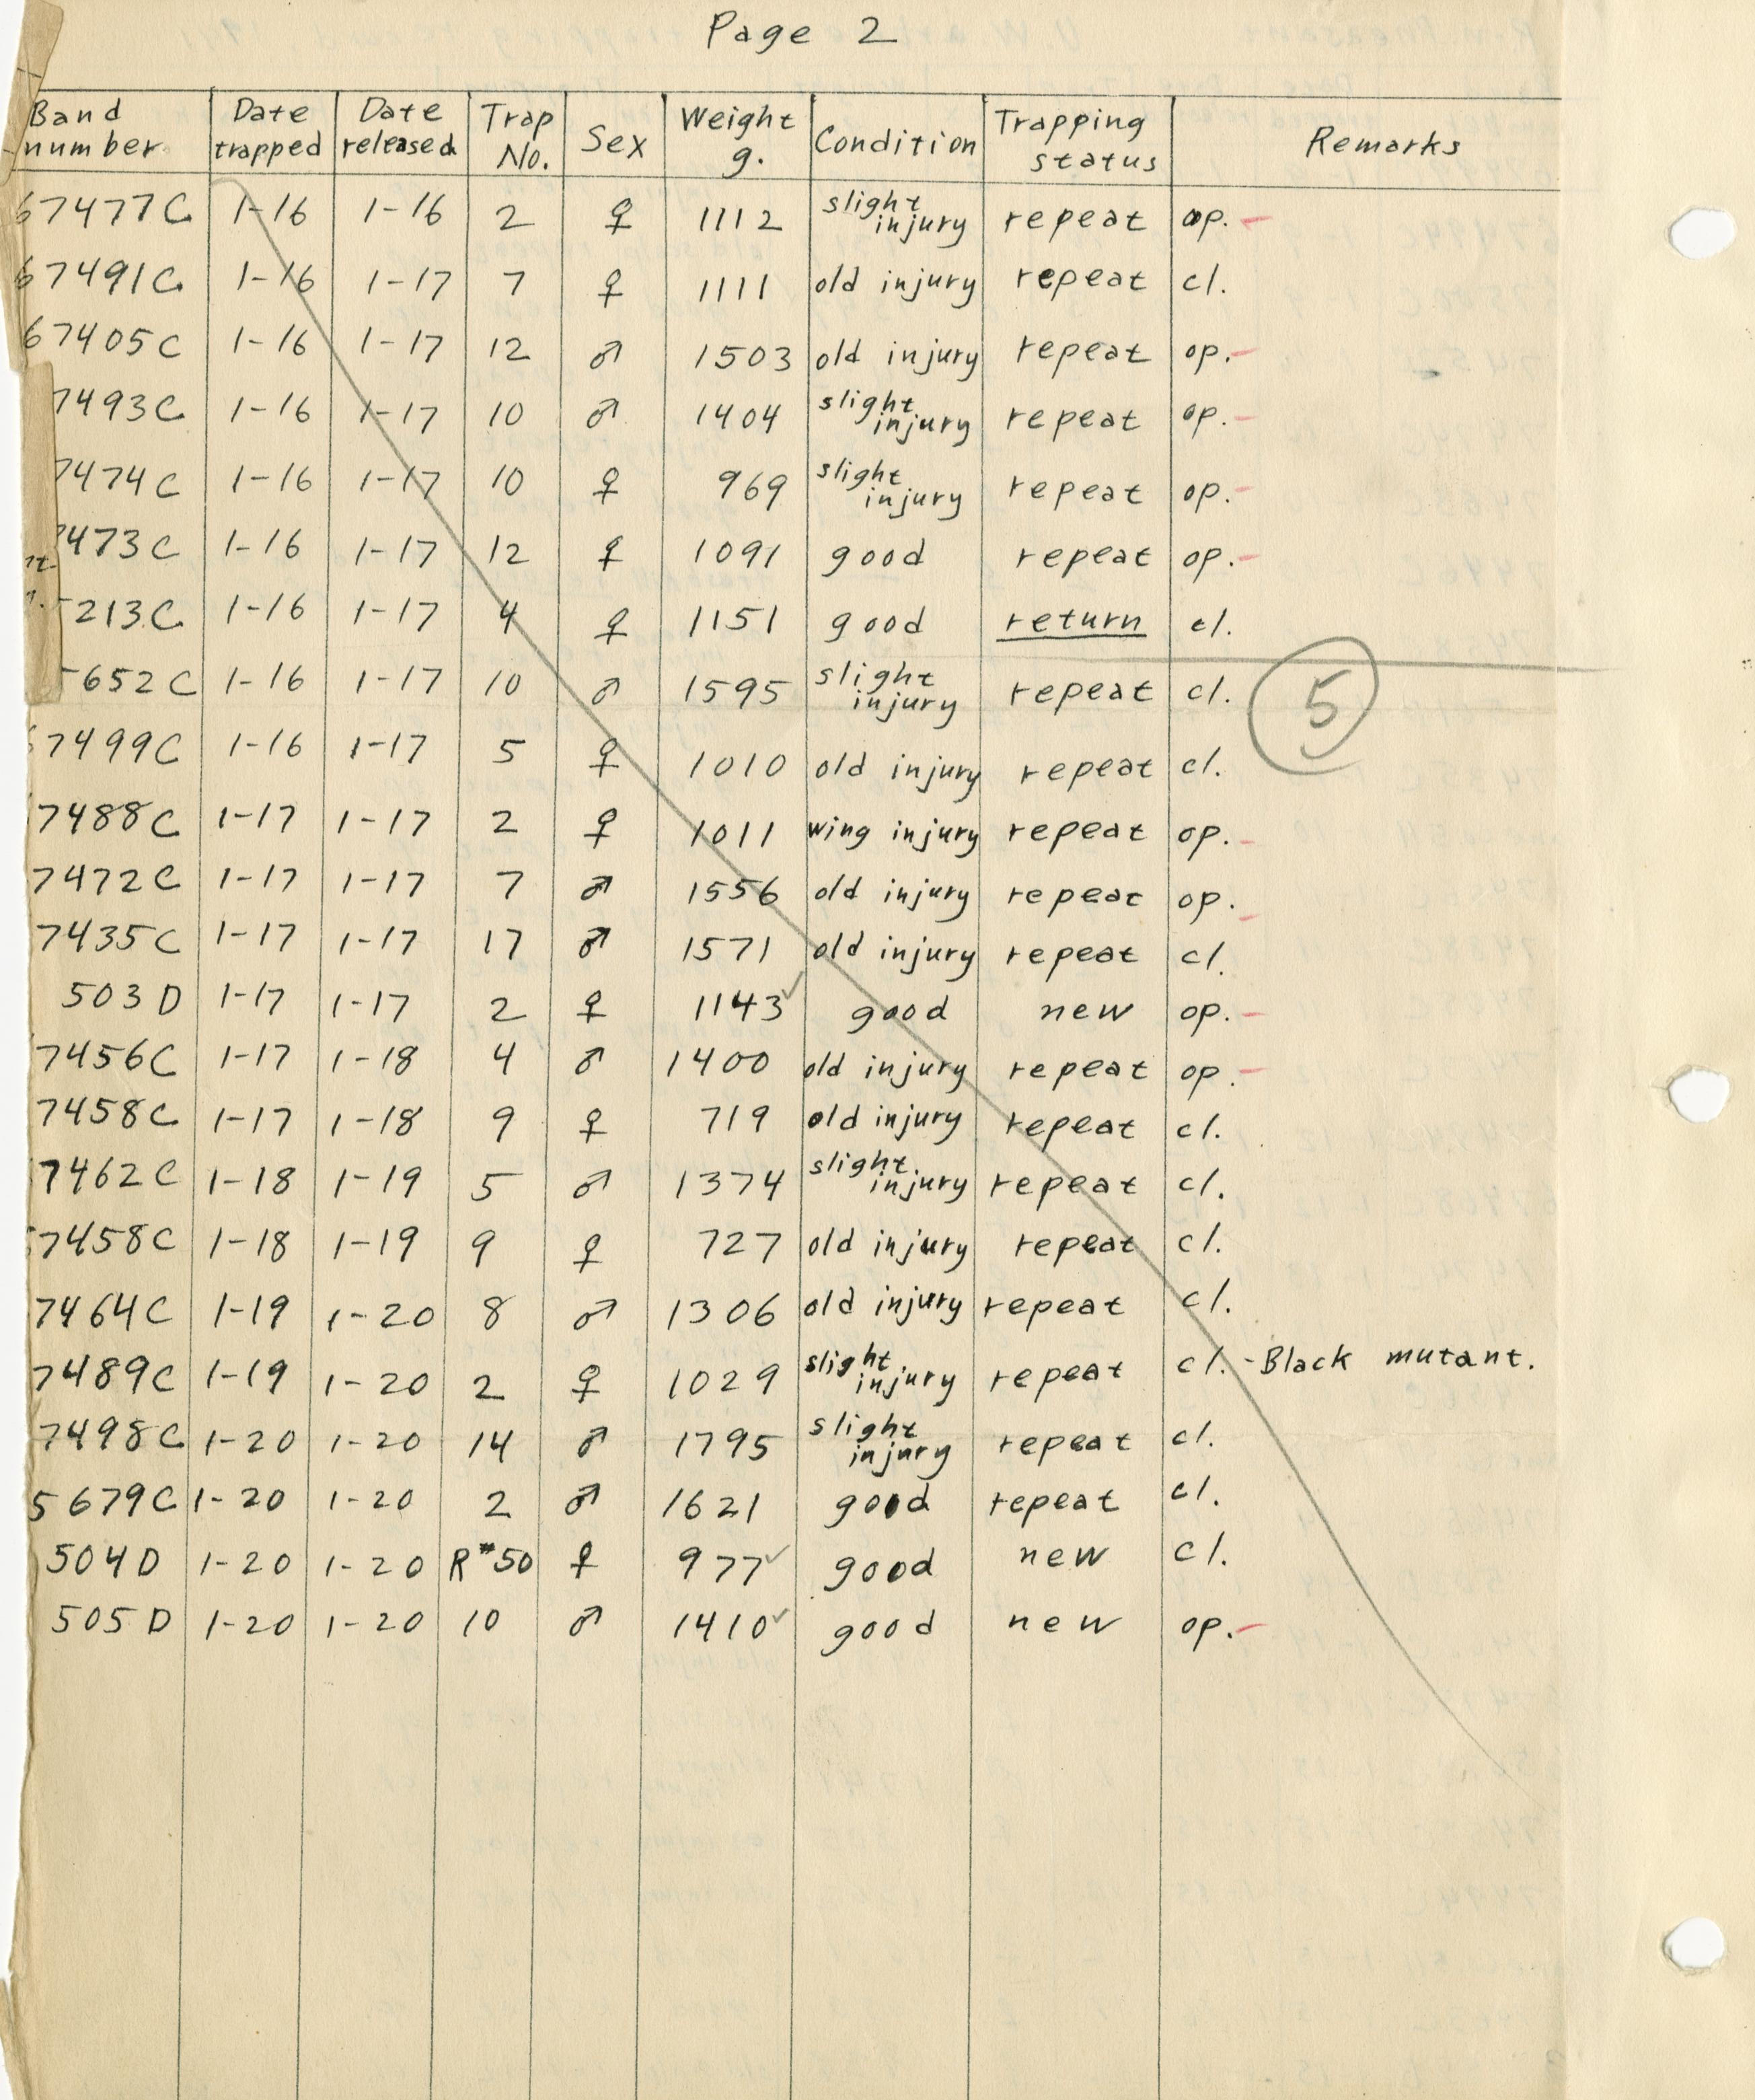 Page 2
Band number Date trapped Date released Trap No. Sex Weight g. Condition Trapping status Remarks
67477C 1-16 1-16 2 ♀ 1112 slight injury repeat op. -
67491C 1-16 1-17 7 ♀ 1111 old injury repeat cl.
67405C 1-16 1-17 12 ♂ 1503 old injury repeat op. -
7493C 1-16 1-17 10 ♂ 1404 slight injury repeat op. -
7474C 1-16 1-17 10 ♀ 969 slight injury repeat op. -
7473C 1-16 1-17 12 ♀ 1091 good repeat op. -
213C 1-16 1-17 4 ♀ 1151 good return cl.
652C 1-16 1-17 10 ♂ 1595 slight injury repeat cl.
5
7499C 1-16 1-17 5 ♀ 1010 old injury repeat cl.
7488C 1-17 1-17 2 ♀ 1011 wing injury repeat op. -
7472C 1-17 1-17 7 ♂ 1556 old injury repeat op. -
7435C 1-17 1-17 17 ♂ 1571 old injury repeat cl.
503D 1-17 1-17 2 ♀ 1143✓ good new op. -
7456C 1-17 1-18 4 ♂ 1400 old injury repeat op. -
7458C 1-17 1-18 9 ♀ 719 old injury repeat cl.
7462C 1-18 1-19 5 ♂ 1374 slight injury repeat cl.
7458C 1-18 1-19 9 ♀ 727 old injury repeat cl.
7464C 1-19 1-20 8 ♂ 1306 old injury repeat cl.
7489C 1-19 1-20 2 ♀ 1029 slight injury repeat cl. - Black mutant.
7498C 1-20 1-20 14 ♂ 1795 slight injury repeat cl.
5679C 1-20 1-20 2 ♂ 1621 good repeat cl.
504D 1-20 1-20 R#50 ♀ 977✓ good new cl.
505D 1-20 1-20 10 ♂ 1410✓ good new op. -